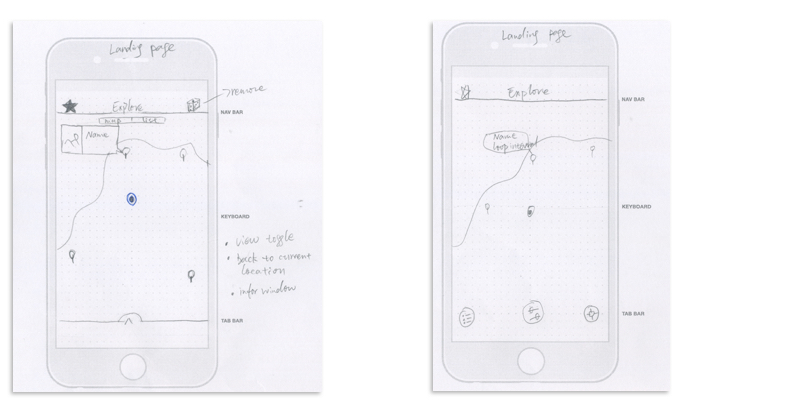 Landing page
→remove
Explore
NAV BAR
map | List
Name
KEYBOARD
• view toggle
• back to current
location
• infor window
TAB BAR
Landing page
Explore
NAV BAR
Name
KEYBOARD
TAB BAR